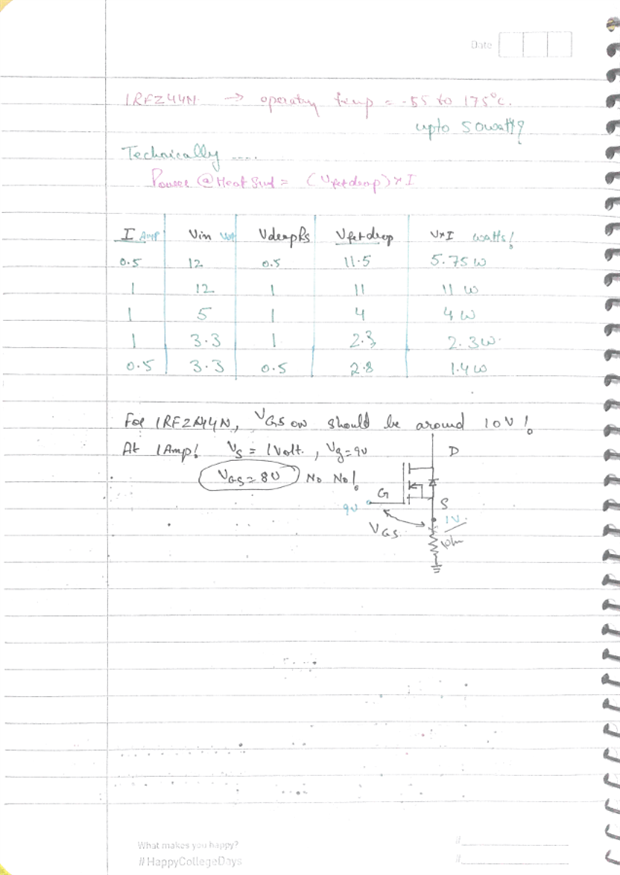 Date
IRFZ44N → operating temp = -55 to 175°C.
upto 50watt?
Technically ....
Power @ Heat Sink = (Vfetdrop) * I
I Amp Vin Volt Vdrop Rs Vfetdrop V*I watts!
0.5 12 0.5 11.5 5.75 W
1 12 1 11 11 W
1 5 1 4 4 W
1 3.3 1 2.3 2.3 W.
0.5 3.3 0.5 2.8 1.4 W
For IRFZ44N, VGS on should be around 10V!
At 1Amp! Vs = 1Volt, Vg = 9V D
VGS = 8V No No! G
9V S
VGS 1V
What makes you happy?
#HappyCollegeDays